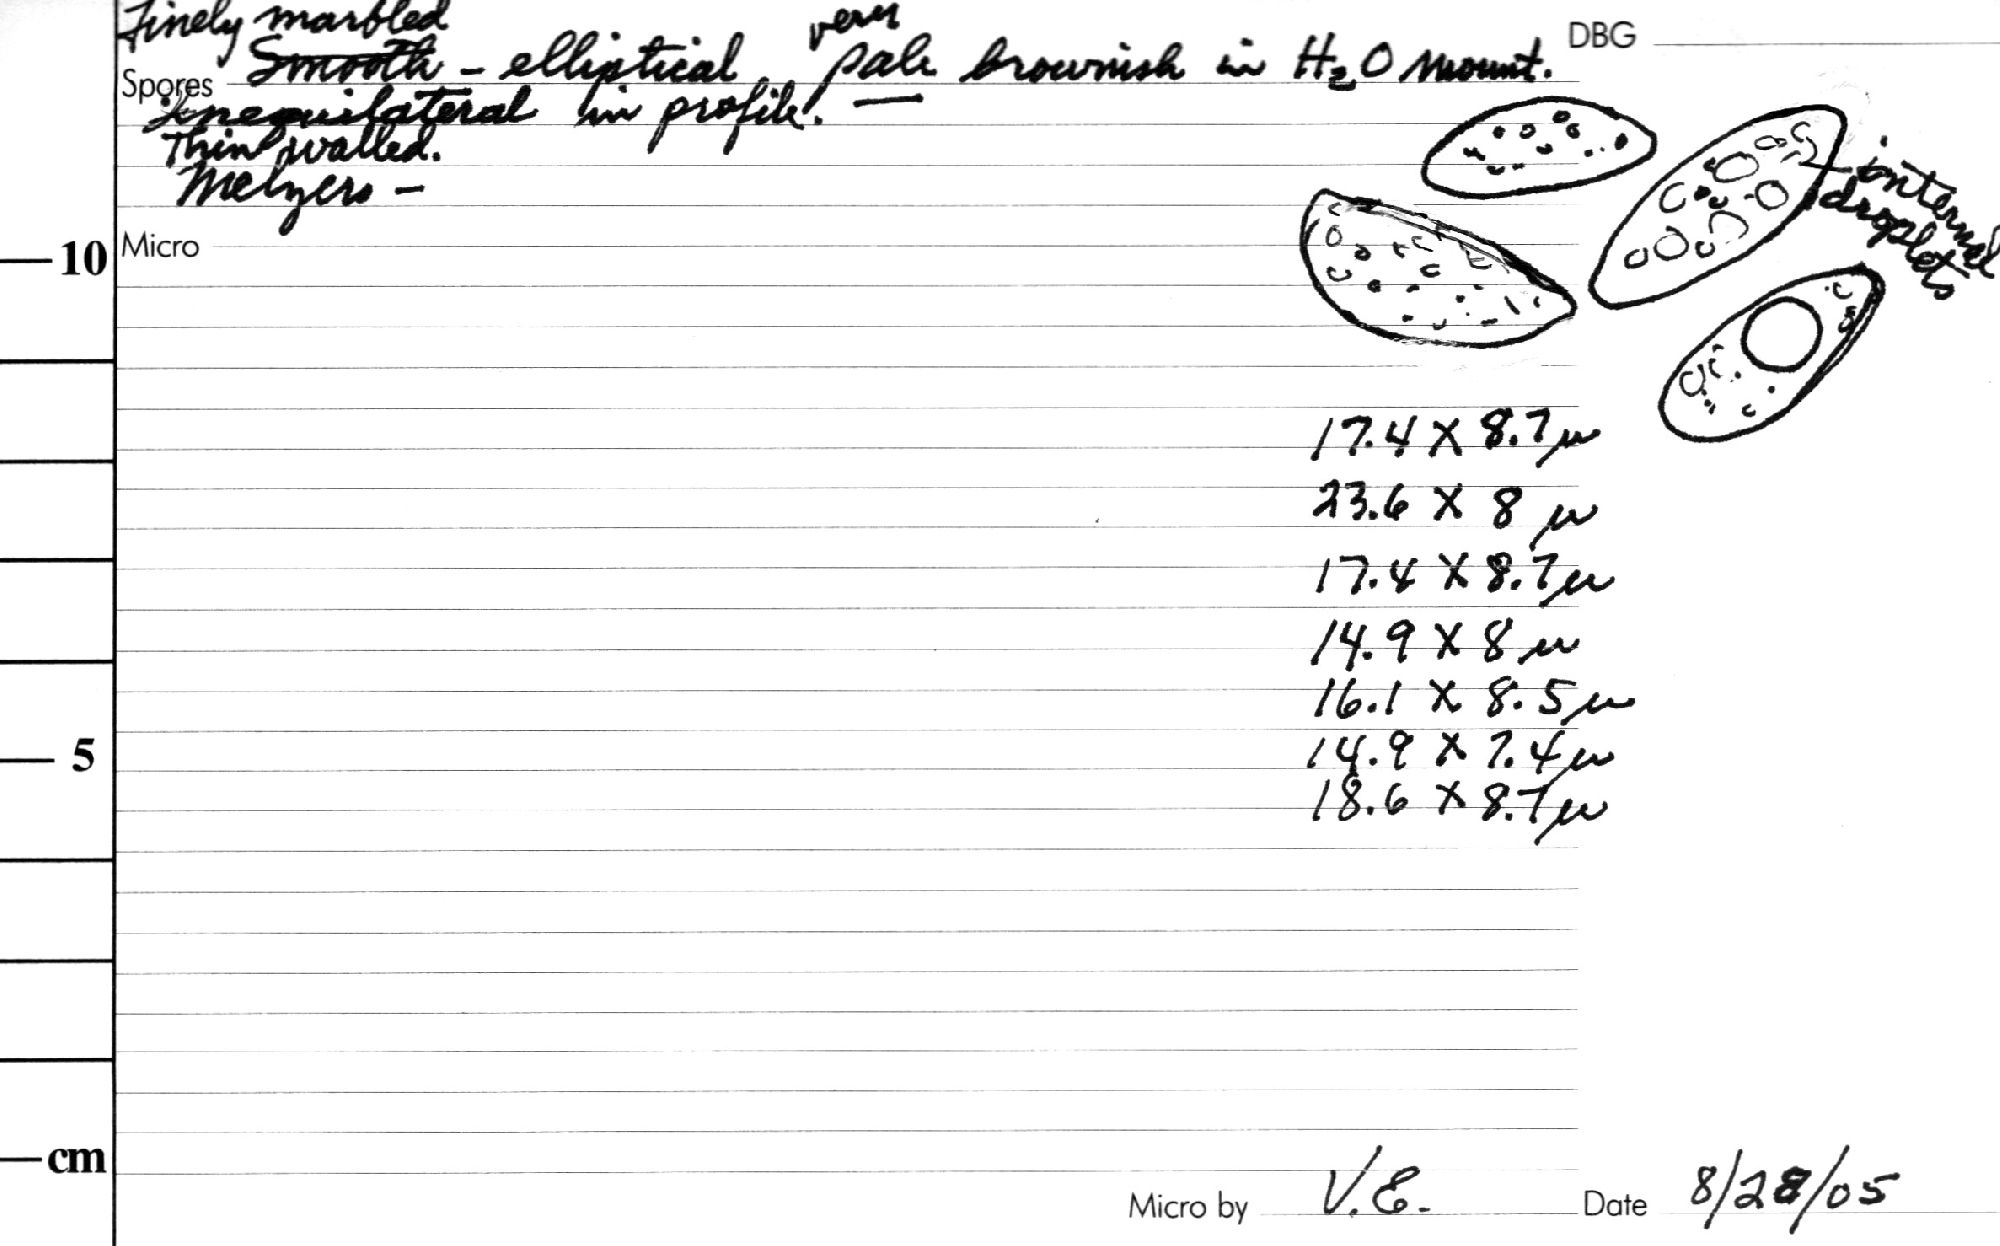 Finely marbled
Spores Smooth - elliptical, very pale brownish in H2O mount.
DBG
Inequilateral in profile. —
Thin walled.
Melzers -
internal
droplets
10
Micro
17.4 X 8.7 µ
23.6 X 8 µ
17.4 X 8.7 µ
14.9 X 8 µ
16.1 X 8.5 µ
5
14.9 X 7.4 µ
18.6 X 8.7 µ
cm
Micro by V.E. Date 8/28/05